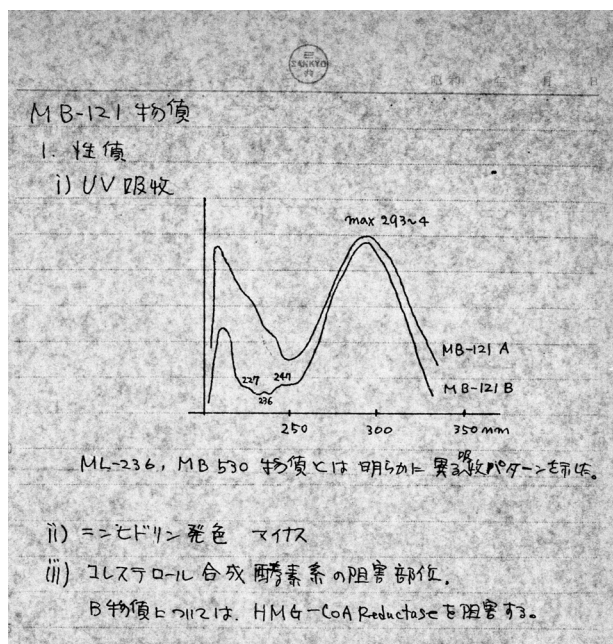 SANKYO
昭和 年 月 日
MB-121 物質
1. 性質
i) UV 吸収
max 293~4
MB-121 A
227 247
MB-121 B
236
250 300 350 mm
ML-236, MB 530 物質とは 明らかに 異る吸収パターンを示した。
ii) ニンヒドリン発色 マイナス
iii) コレステロール合成酵素系の阻害部位.
B物質については、HMG-CoA Reductaseを阻害する。